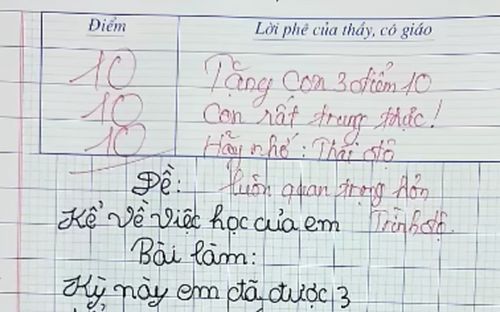 Điểm
Lời phê của thầy, cô giáo
10
10
10
Tặng Con 3 điểm 10
Con rất trung thực!
Hãy nhớ: Thái độ
luôn quan trọng hơn
Trình độ.
Đề:
Kể về việc học của em
Bài làm:
Kỳ này em đã được 3